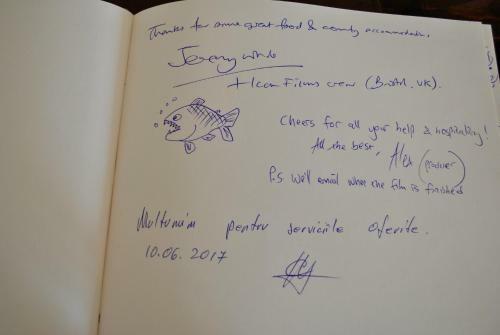 Thanks for some great food & comfy accommodation.
Jeremy Wade
+ Icon Films crew (Bristol, UK).
Cheers for all your help & hospitality!
All the best,
Alex (producer)
P.S. We'll email when the film is finished
Multumim pentru serviciile oferite.
10.06.2017